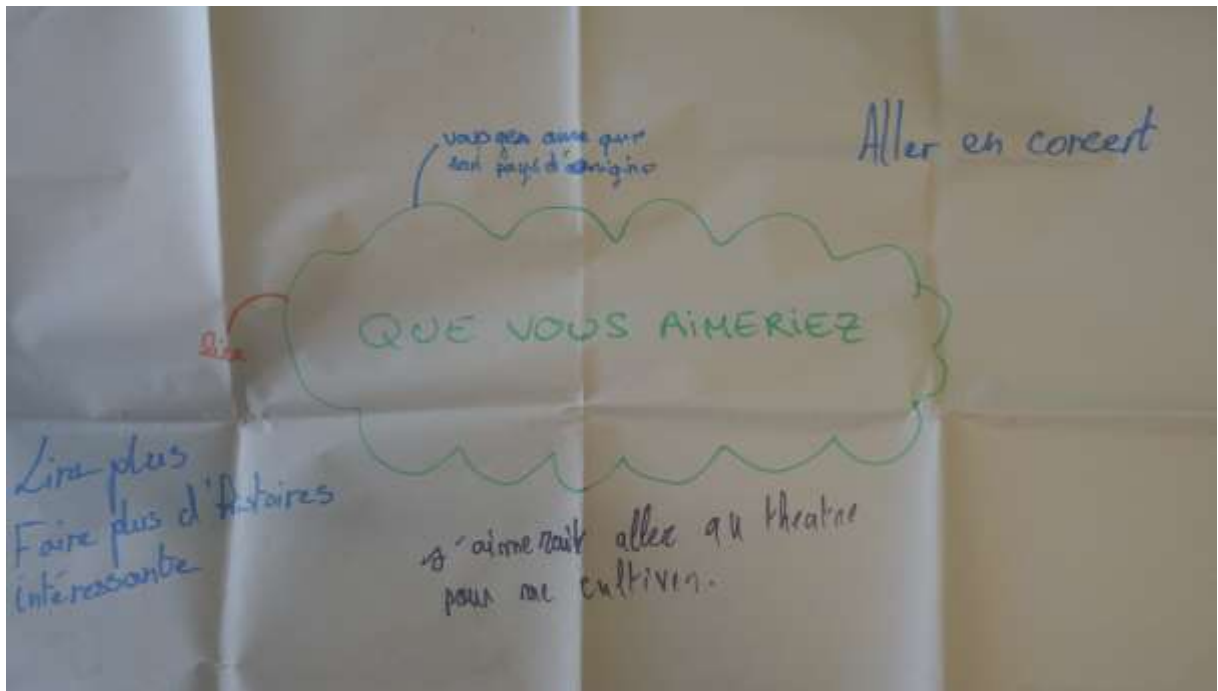 voyager autre que
son pays d'origine
Aller en concert
QUE VOUS AIMERIEZ
lire
Lire plus
Faire plus d'histoires
intéressante
j'aimerait aller au theatre
pour me cultiver.